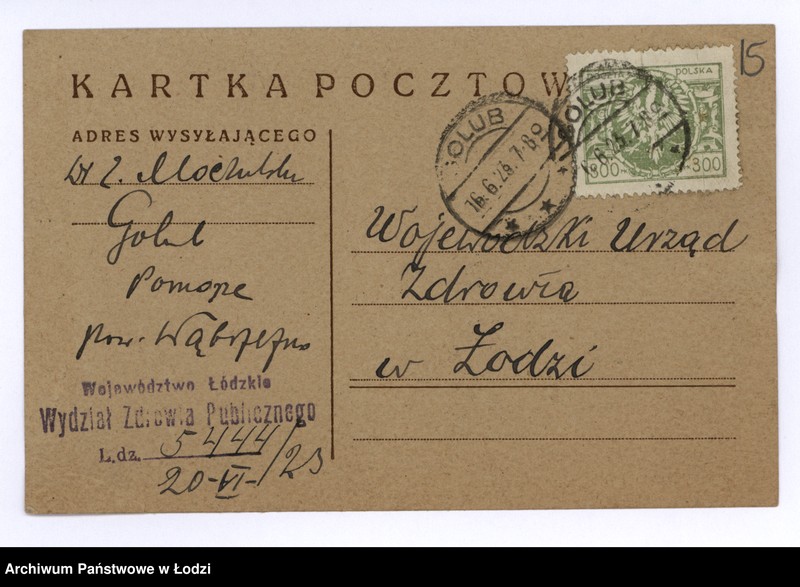 15
KARTKA POCZTOW
POLSKA
300 300
GOLUB
16.6.23.7-8
GOLUB
16.6.23.7-8
ADRES WYSYŁAJĄCEGO
Dr
Golub
Pomorze
pow. Wąbrzeźno
Wojewodzki Urząd
Zdrowia
w Łodzi
Województwo Łódzkie
Wydział Zdrowia Publicznego
L. dz. 5444/23
20-VI-
Archiwum Państwowe w Łodzi